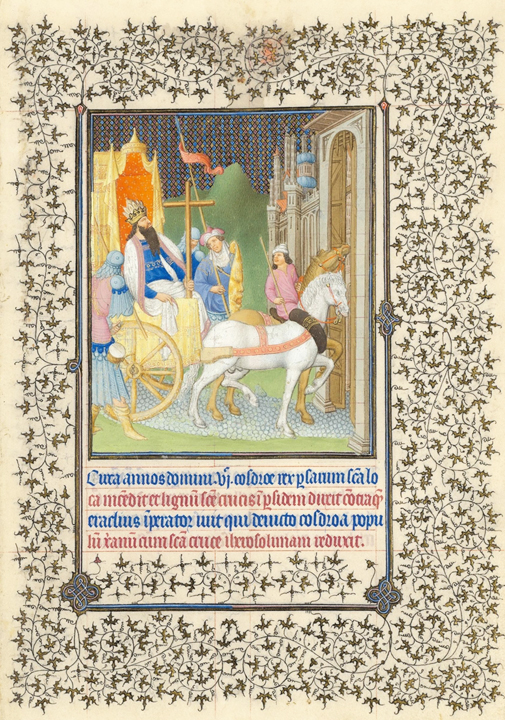 Circa annos domini. vj. cosdroe rex p̱sarum sc̄a lo
ca incēdit et lignū sc̄e crucis ī p̱sidem duxit cōtra q̄
eraclius īperator iuit qui deuicto cosdroa popu
lū xp̄anū cum sc̄a cruce iherosolimam reduxit.